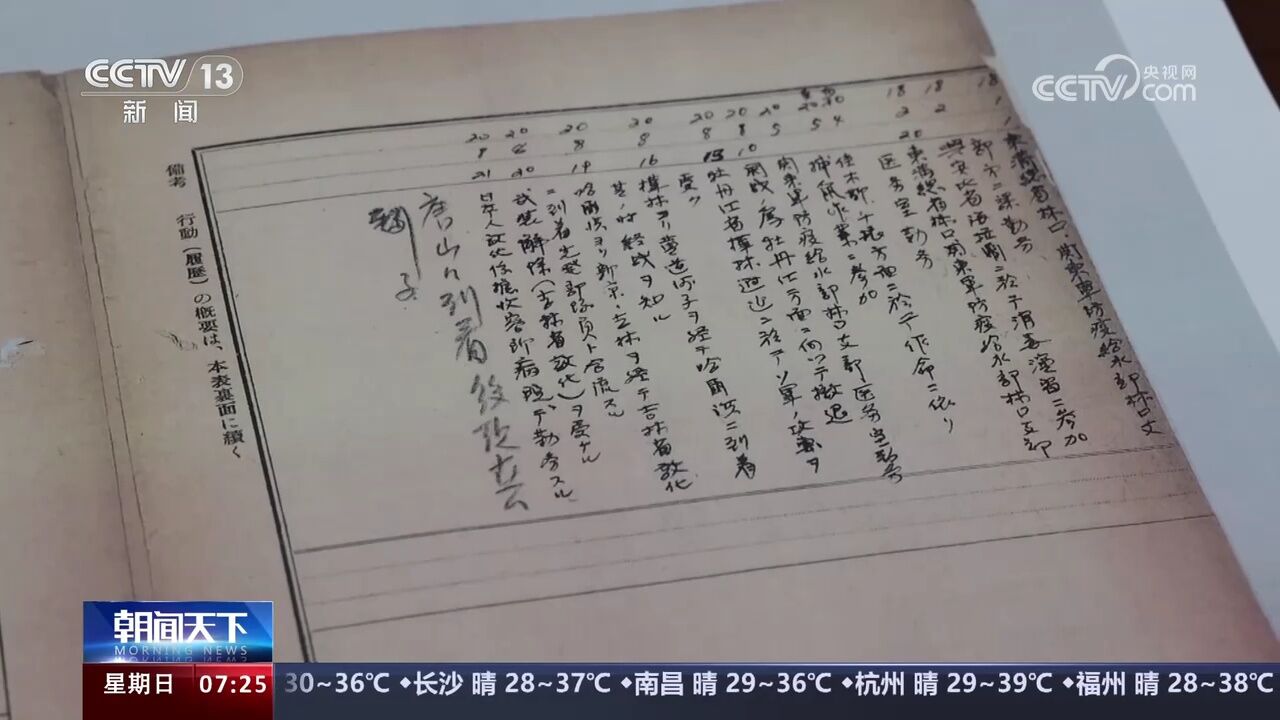 CCTV 13
新闻
央视网
CCTV.com
18 1 東満総省林口関東軍防疫給水部林口支
部ニテ課勤務
18 2 興安北省海拉爾ニ於テ消毒演習ニ参加
18 2 20 東満総省林口関東軍防疫給水部林口支部
医务室勤务
20 4 佳木斯、千振方面ニ於テ作命ニ依リ
捕鼠作業ニ参加
20 5 関東軍防疫給水部林口支部医务室勤务
20 8 10 開戦ノ為牡丹江方面ニ向ツテ撤退
20 8 13 牡丹江省樺林附近ニ於テソ軍ノ攻撃ヲ
受ク
20 8 16 樺林ヨリ
ヲ経テ哈爾浜ニ到着
其ノ時終戦ヲ知ル
20 8 19 哈爾浜ヨリ新京、吉林ヲ経テ吉林省敦化
ニ到着先発部隊員ト合流スル
20 8 20 武装解除(吉林省敦化)ヲ受ケル
20 8 21 日本人
収容所病院デ勤务スル
唐山
到着後
備考 行動(履歴)の概要は、本表裏面に続く
朝闻天下
MORNING NEWS
星期日 07:25
30~36℃ ◆长沙 晴 28~37℃ ◆南昌 晴 29~36℃ ◆杭州 晴 29~39℃ ◆福州 晴 28~38℃